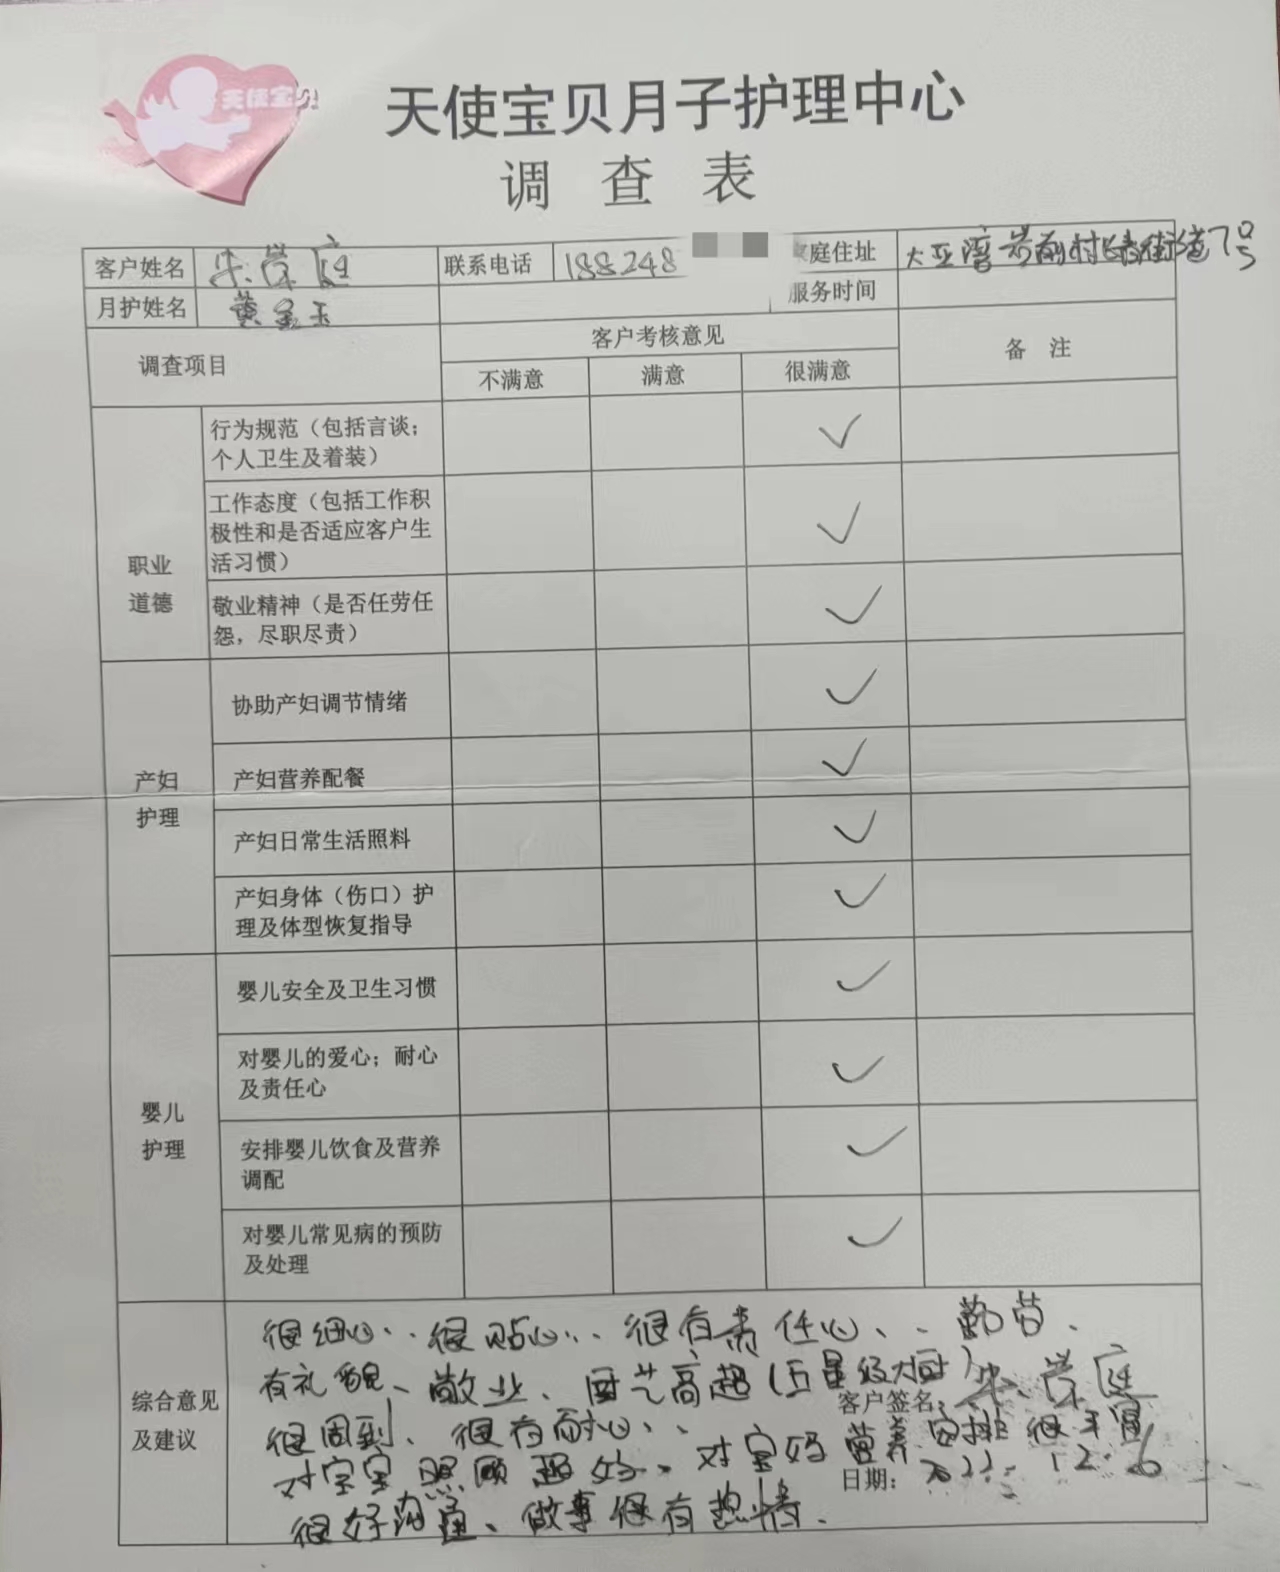 天使宝贝
天使宝贝月子护理中心
调查表
客户姓名 朱崇庭 联系电话 188248 家庭住址 大亚湾 前村 街道7号
月护姓名 黄金玉 服务时间
调查项目 客户考核意见 备 注
不满意 满意 很满意
职业
道德
行为规范（包括言谈；
个人卫生及着装） ✓
工作态度（包括工作积
极性和是否适应客户生
活习惯） ✓
敬业精神（是否任劳任
怨，尽职尽责） ✓
产妇
护理
协助产妇调节情绪 ✓
产妇营养配餐 ✓
产妇日常生活照料 ✓
产妇身体（伤口）护
理及体型恢复指导 ✓
婴儿
护理
婴儿安全及卫生习惯 ✓
对婴儿的爱心；耐心
及责任心 ✓
安排婴儿饮食及营养
调配 ✓
对婴儿常见病的预防
及处理 ✓
综合意见
及建议
很细心、很贴心、很有责任心、勤劳、
有礼貌、敬业、厨艺高超（五星级大厨）
客户签名： 朱崇庭
很周到、很有耐心、
对宝宝照顾超好、对宝妈营养安排很丰富
日期： 2022.12.6
很好沟通、做事很有热情.